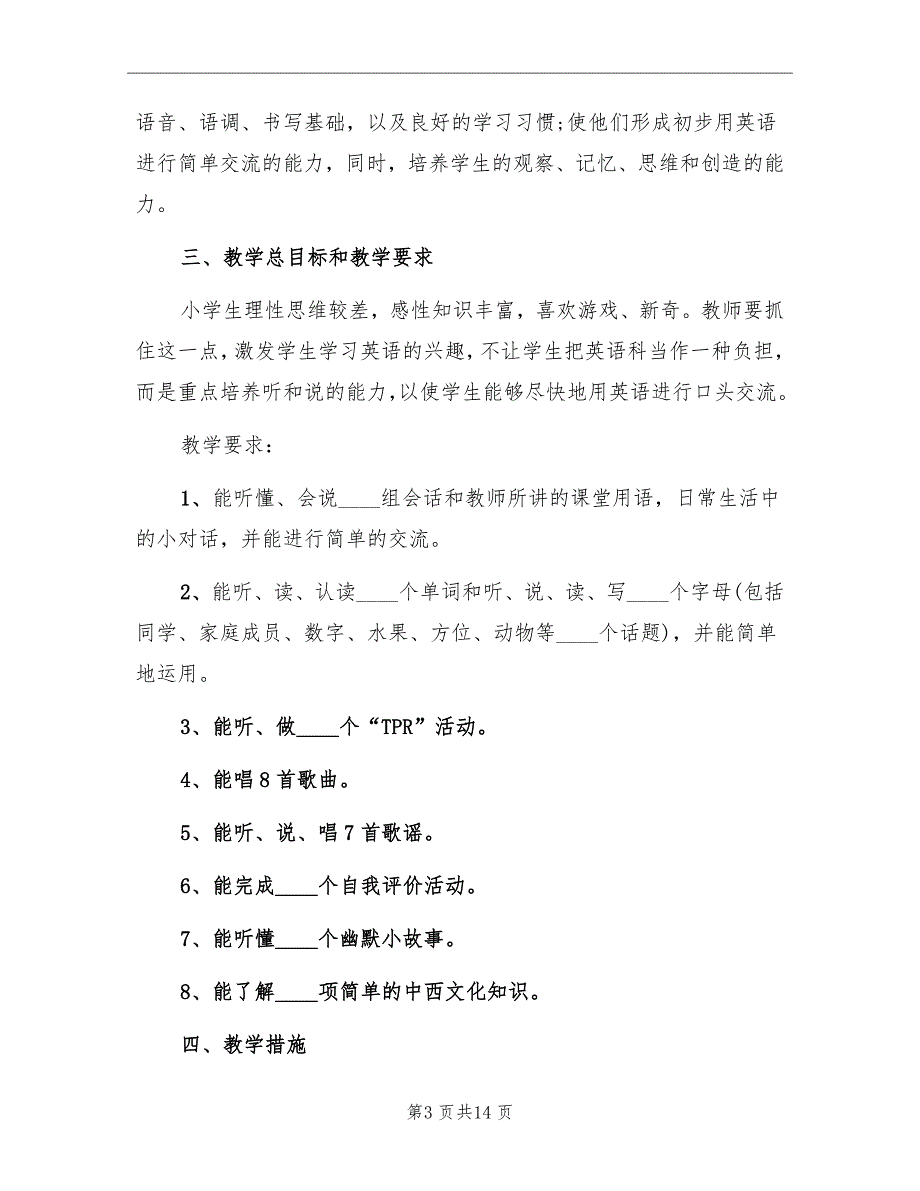 语音、语调、书写基础，以及良好的学习习惯;使他们形成初步用英语
进行简单交流的能力，同时，培养学生的观察、记忆、思维和创造的能
力。
三、教学总目标和教学要求
小学生理性思维较差，感性知识丰富，喜欢游戏、新奇。教师要抓
住这一点，激发学生学习英语的兴趣，不让学生把英语科当作一种负担，
而是重点培养听和说的能力，以使学生能够尽快地用英语进行口头交流。
教学要求：
1、能听懂、会说____组会话和教师所讲的课堂用语，日常生活中
的小对话，并能进行简单的交流。
2、能听、读、认读____个单词和听、说、读、写____个字母(包括
同学、家庭成员、数字、水果、方位、动物等____个话题)，并能简单
地运用。
3、能听、做____个“TPR”活动。
4、能唱 8 首歌曲。
5、能听、说、唱 7 首歌谣。
6、能完成____个自我评价活动。
7、能听懂____个幽默小故事。
8、能了解____项简单的中西文化知识。
四、教学措施
第3 页共14 页